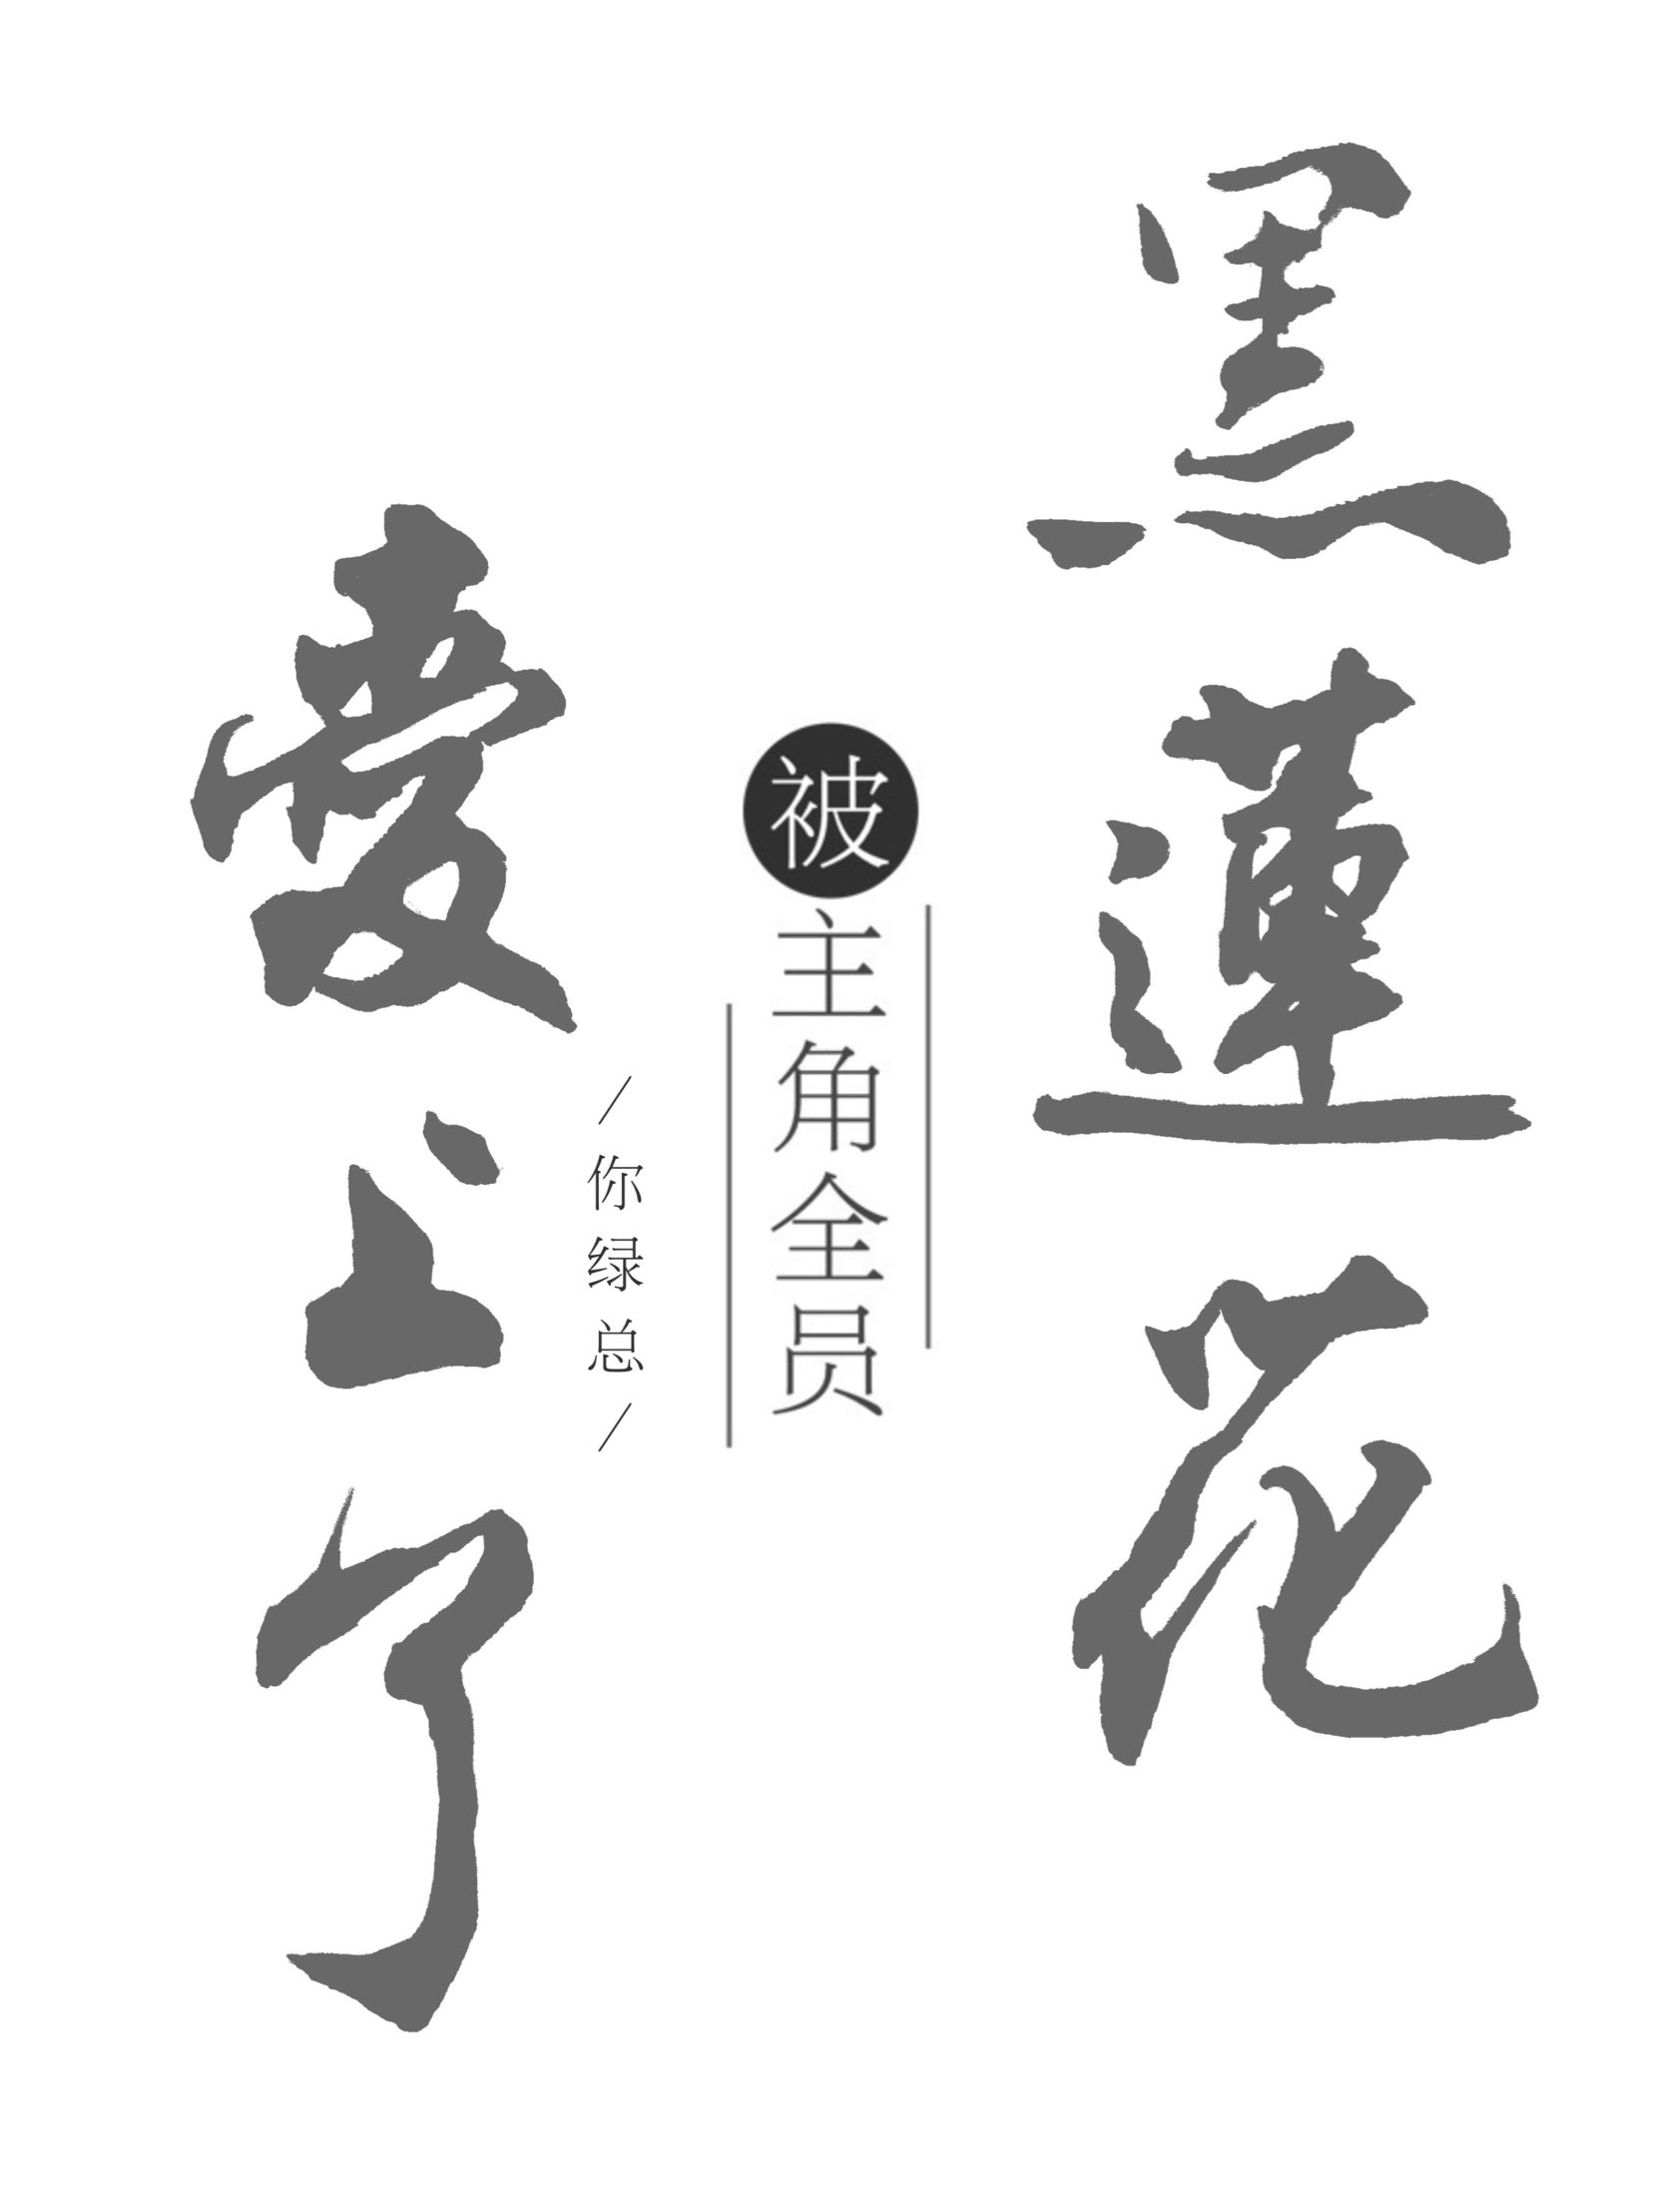 黑蓮花
被主角全员
愛上了
/你绿总/